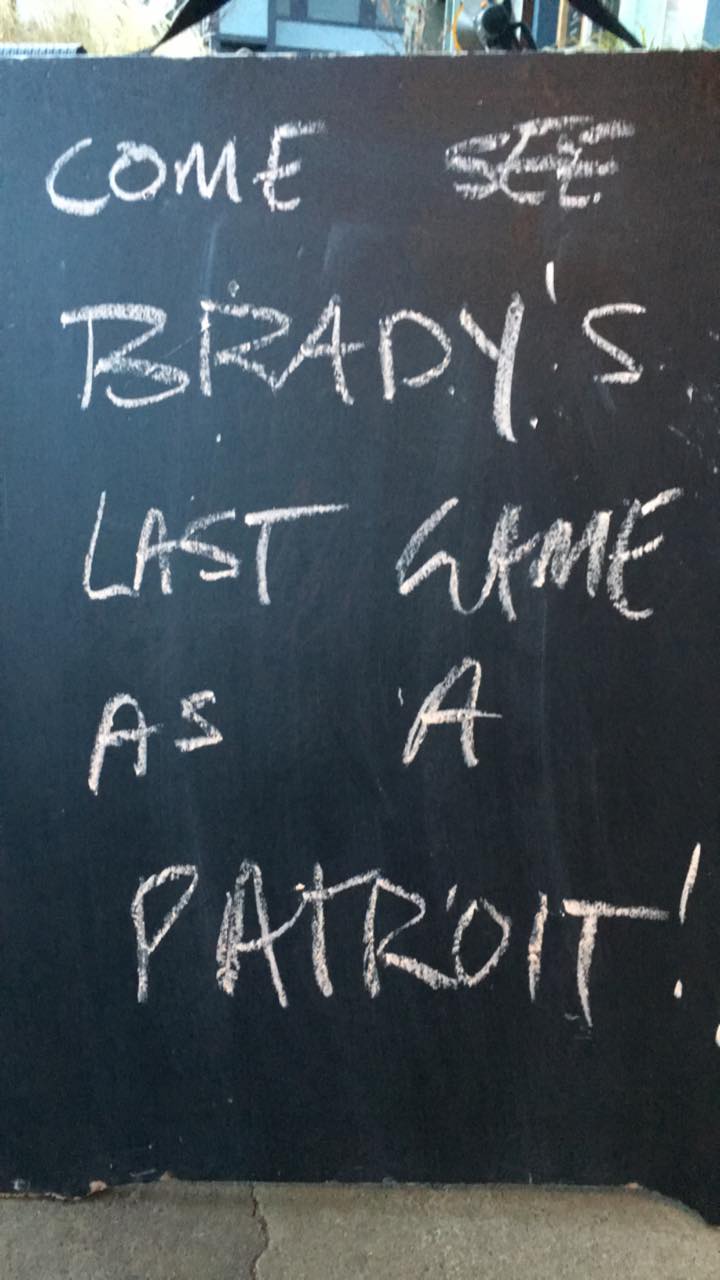 COME SEE
BRADY'S
LAST GAME
AS A
PATROIT!